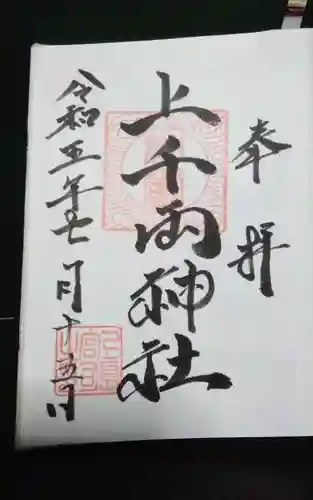 奉拝
上千両神社
令和五年七月十五日